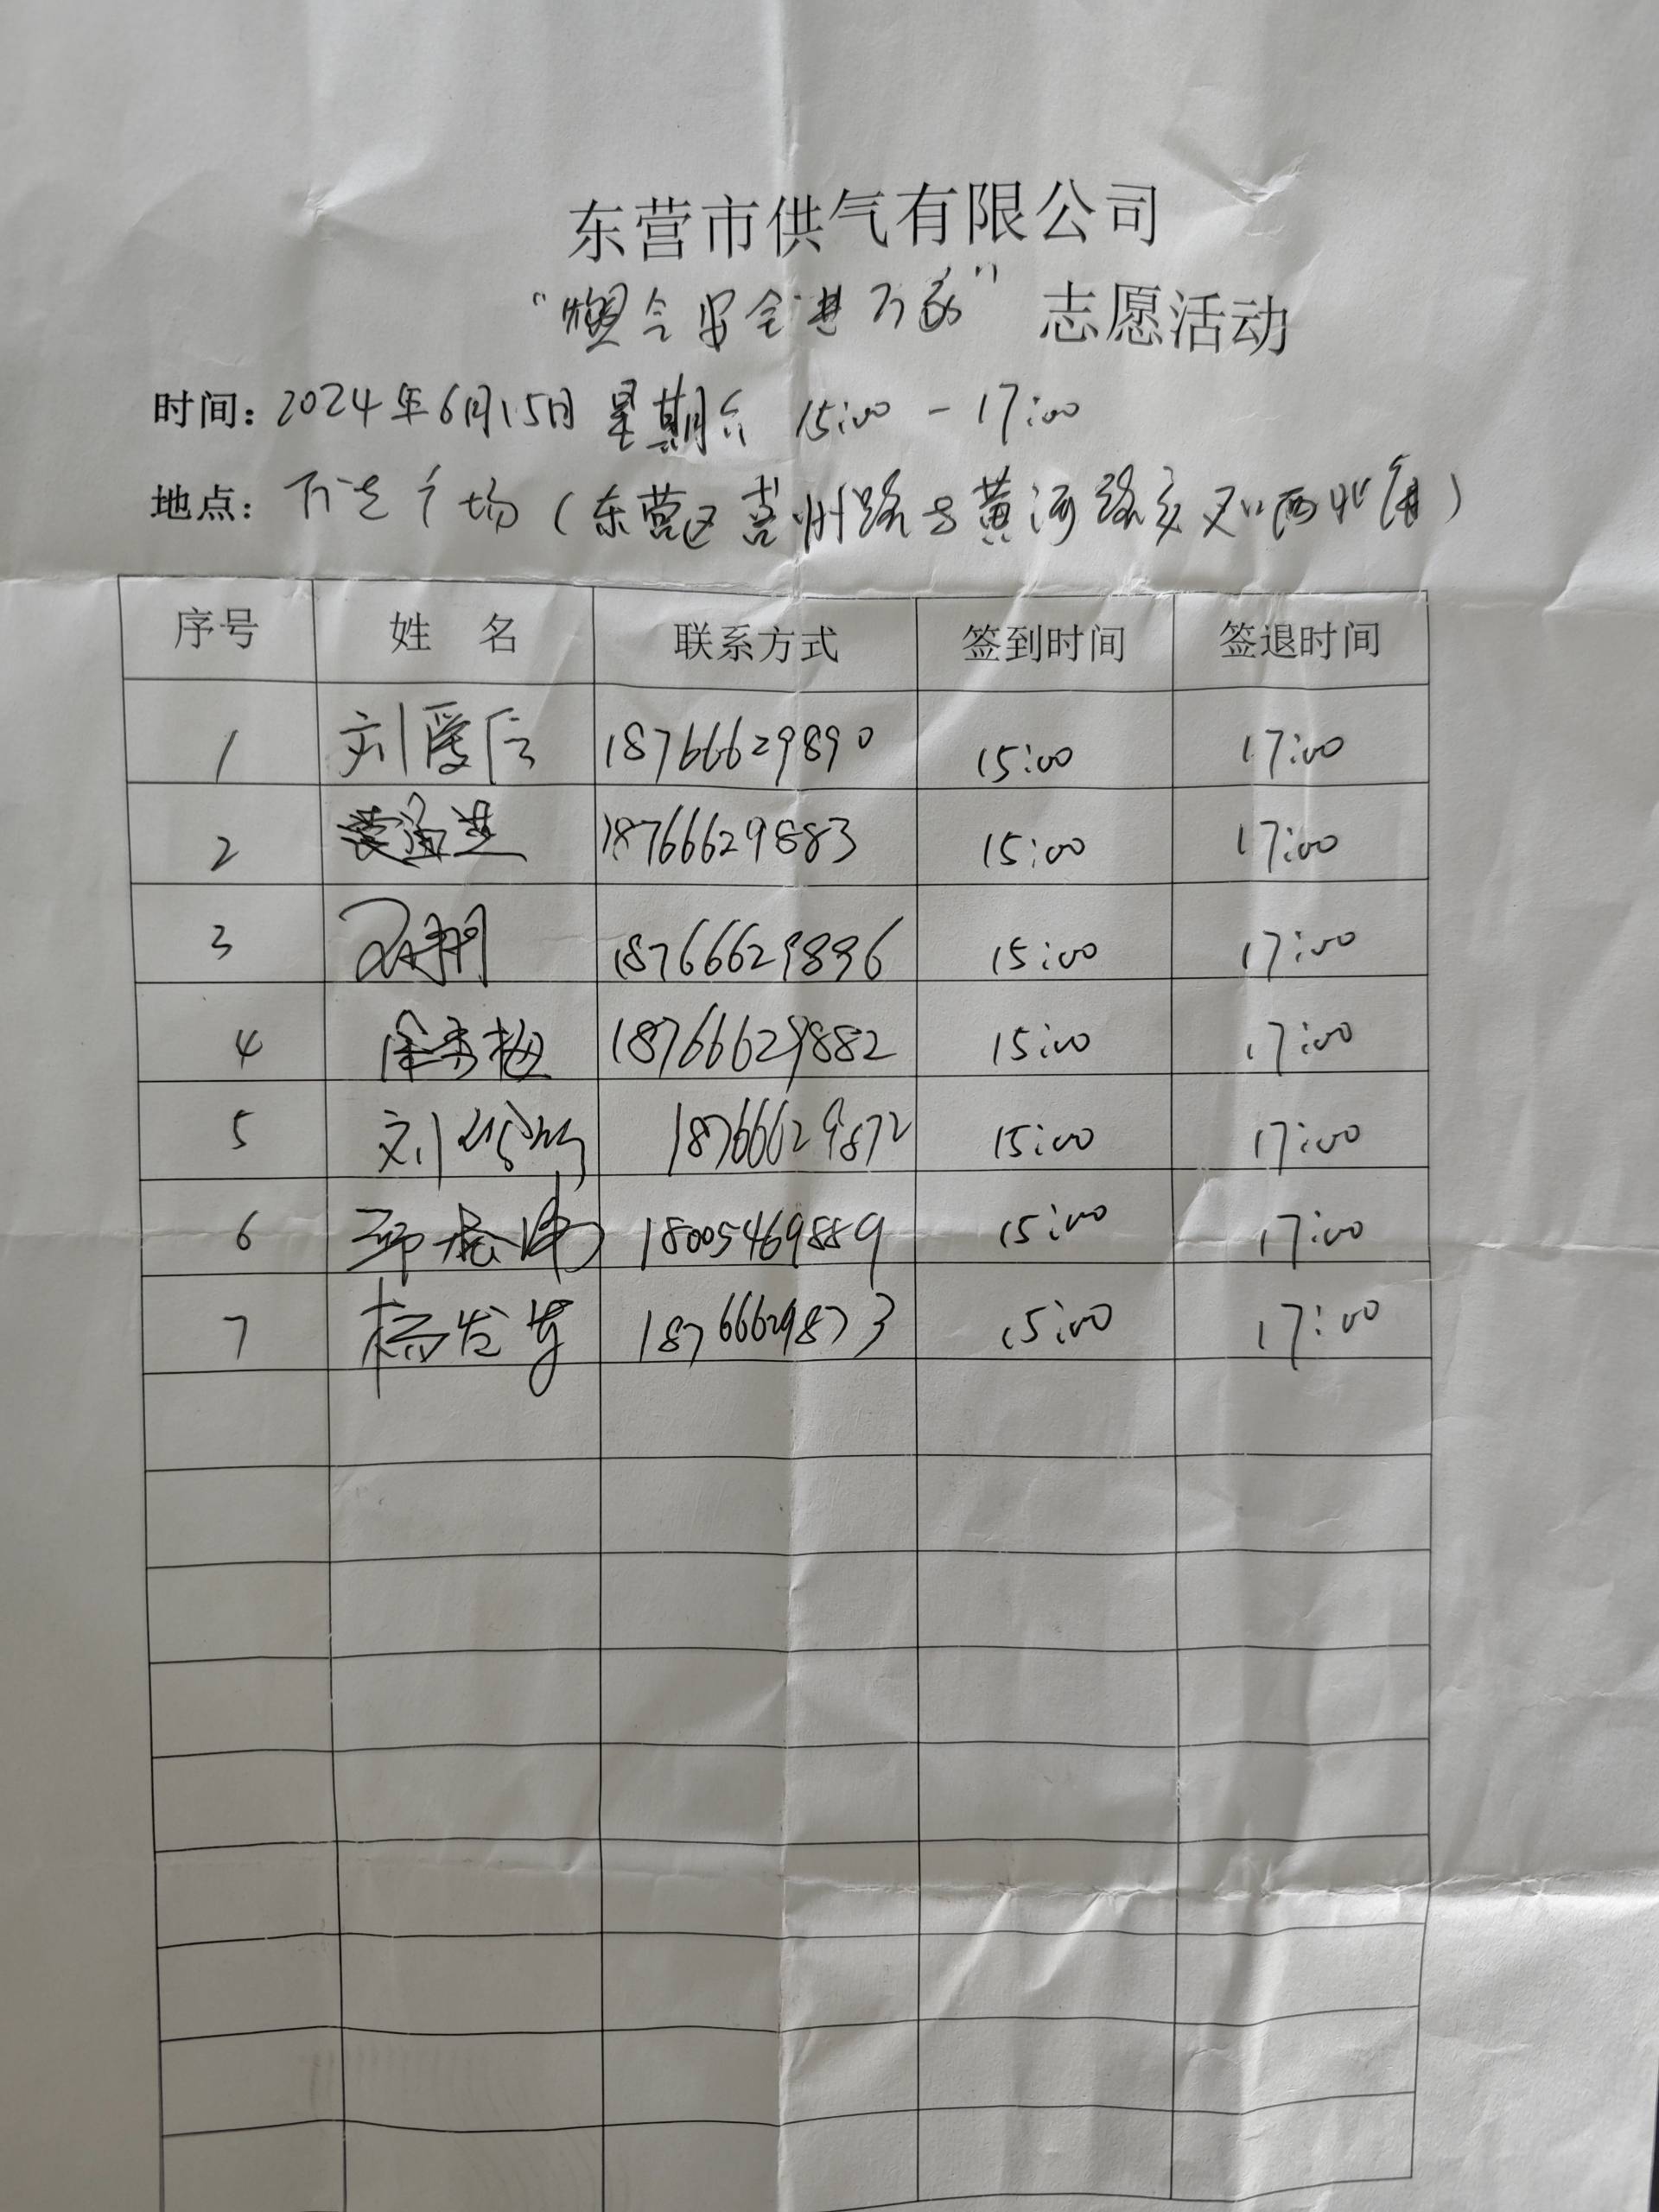 东营市供气有限公司
“燃气安全进万家”志愿活动
时间：2024年6月15日 星期六 15:00－17:00
地点：万达广场（东营区 州路与黄河路交叉口西北角）
序号 姓名 联系方式 签到时间 签退时间
1 刘爱信 18766629890 15:00 17:00
2 18766629883 15:00 17:00
3 18766629896 15:00 17:00
4 徐秀梅 18766629882 15:00 17:00
5 刘 18766629872 15:00 17:00
6 18005469889 15:00 17:00
7 杨发 18766629873 15:00 17:00